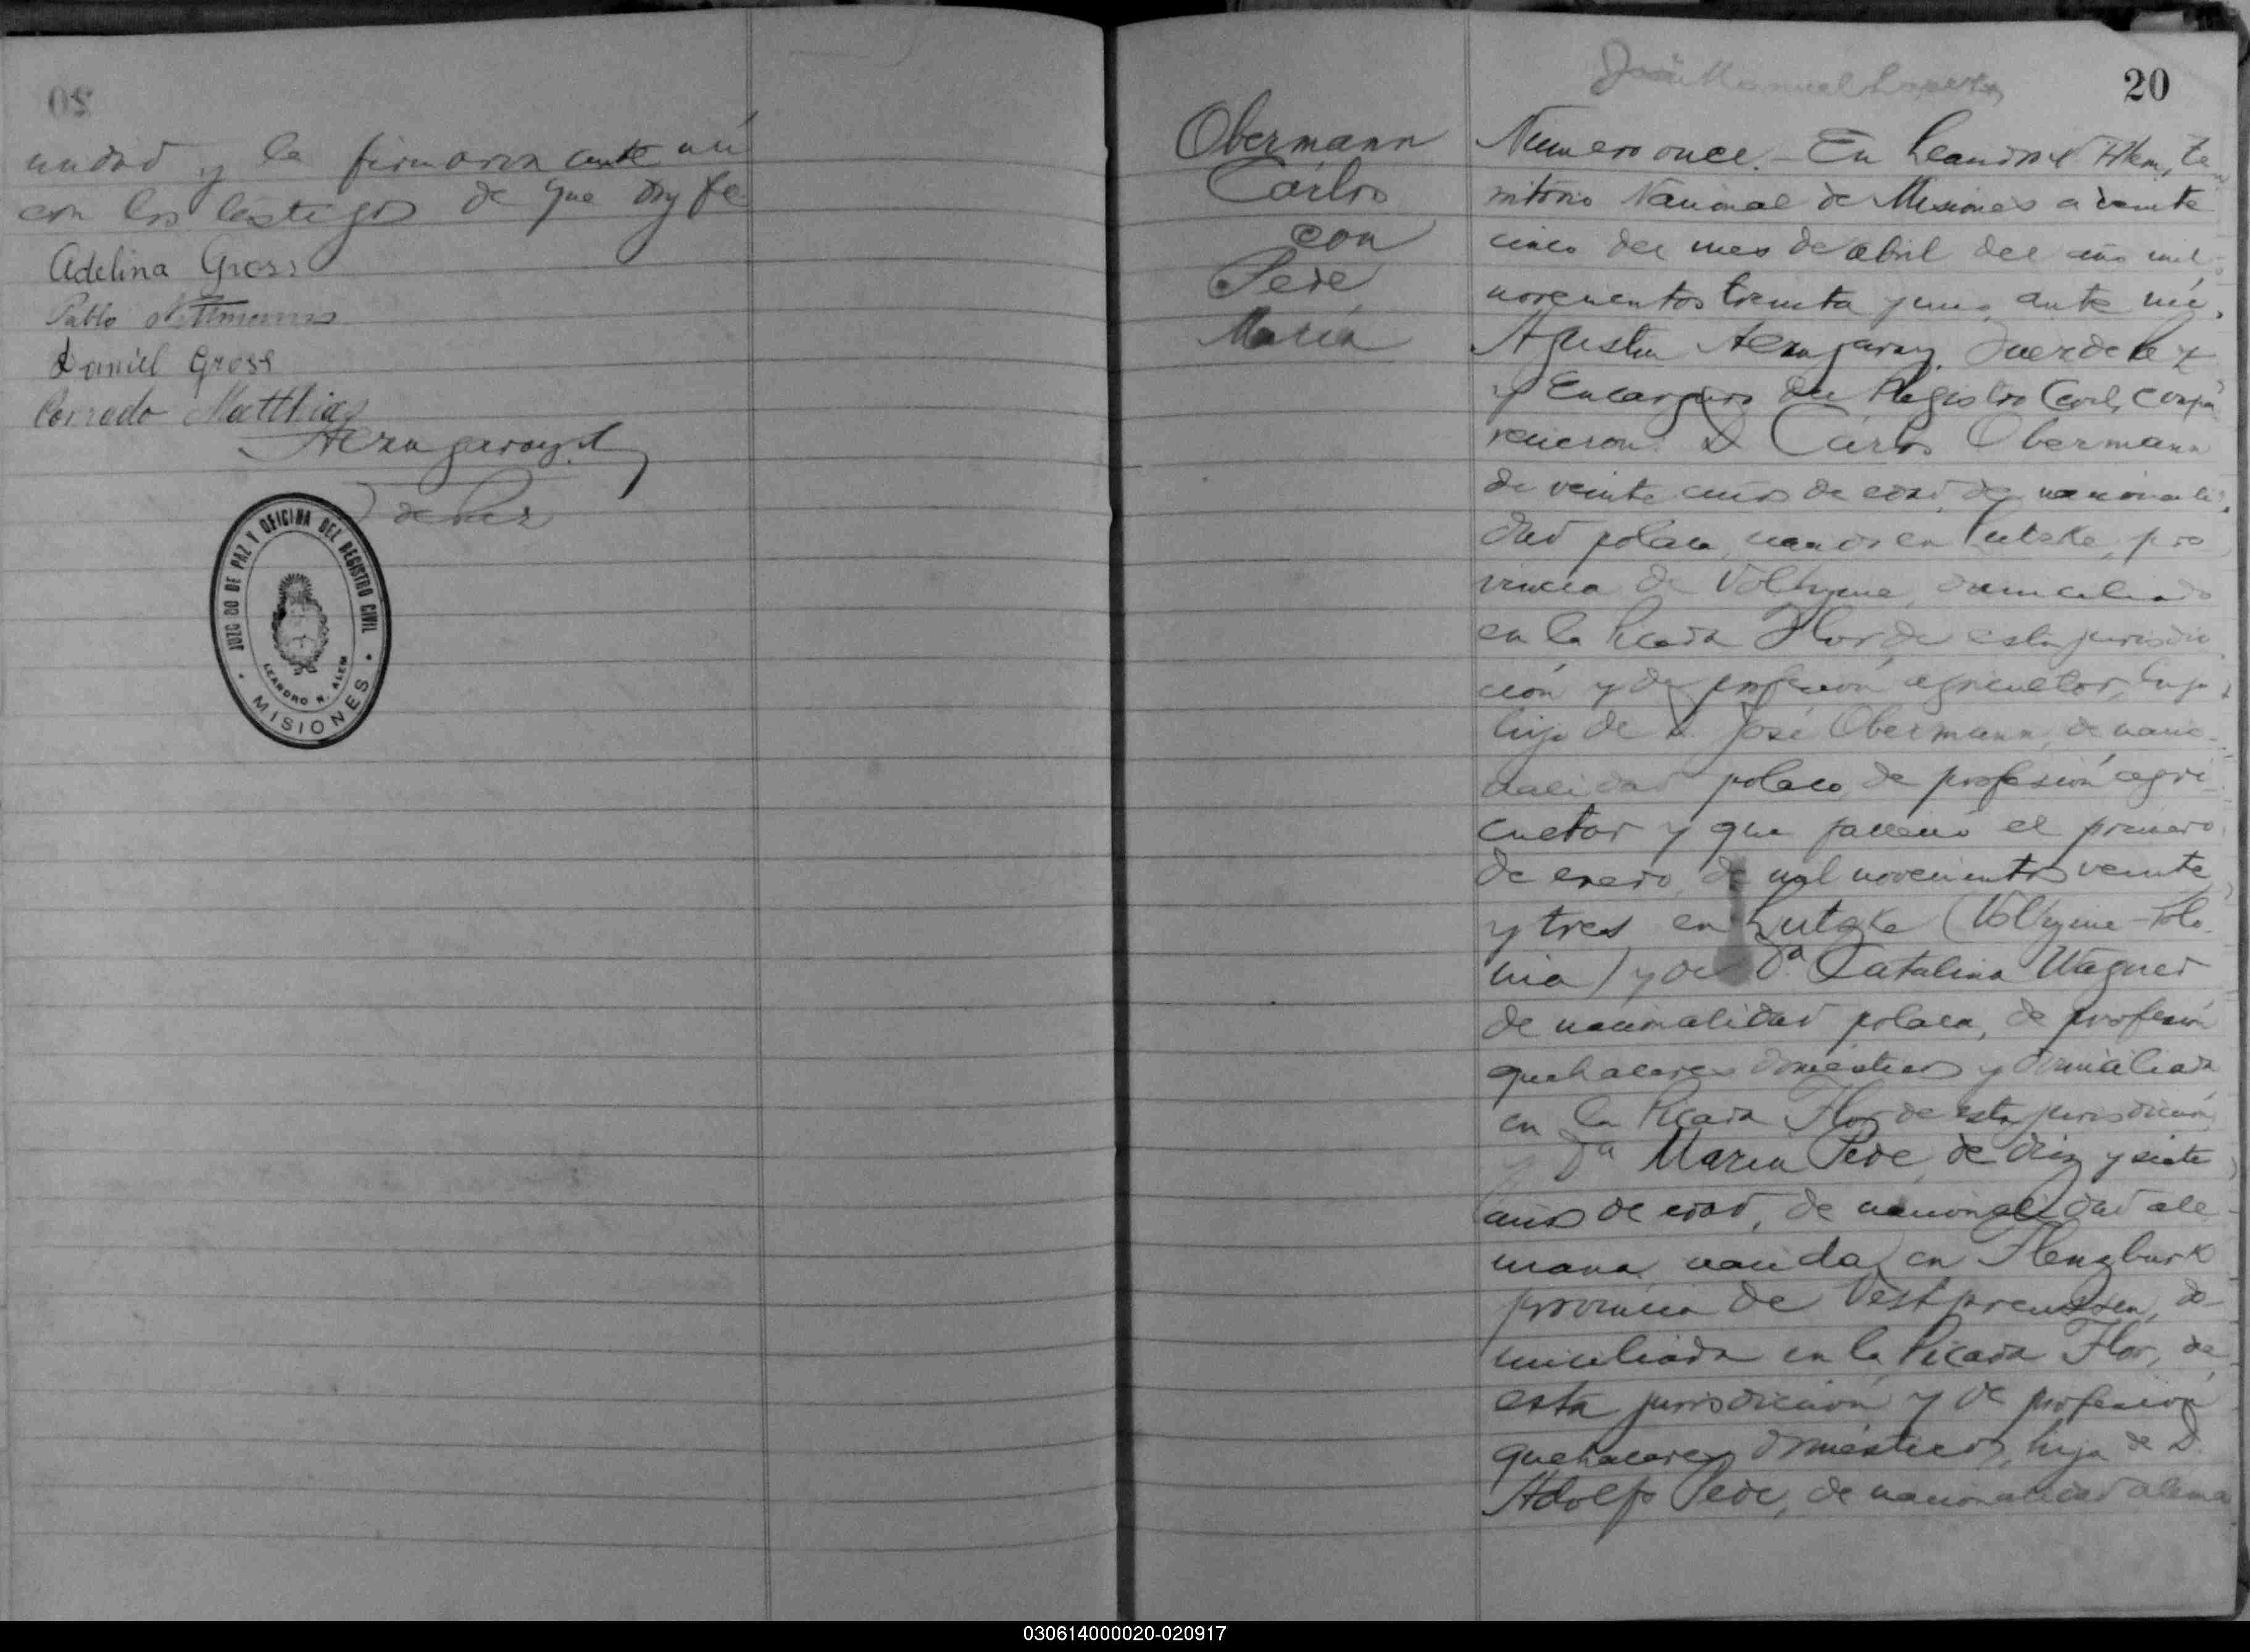 unidad y la firmaron ante mí
con los testigos de que doy fe
Adelina Gross
Pablo
Daniel Gross
Conrado Matthias
de Paz
JUZGADO DE PAZ Y OFICINA DEL REGISTRO CIVIL
LEANDRO N. ALEM
MISIONES
20
Obermann
Carlos
con
Pede
María
Numero once. - En Leandro N Alem, Te
rritorio Nacional de Misiones a veinte
cinco del mes de abril del año mil
novecientos treinta y uno, ante mí,
Agustin Juez de Paz
y Encargado del Registro Civil, compa
recieron: D Carlos Obermann
de veinte años de edad, de nacionali
dad polaca, nacido en Lutzke, pro
vincia de Volhynie, domiciliado
en la Picada Flor, de esta jurisdic
ción y de profesión agricultor, hijo
hijo de D. José Obermann, de nacio-
nalidad polaco, de profesión agri-
cultor y que falleció el primero
de enero, de mil novecientos veinte
y tres en Lutzke (Volhynie - Polo
nia) y de Da. Catalina Wagner
de nacionalidad polaca, de profesión
quehaceres domésticos y domiciliada
en la Picada Flor de esta jurisdicción
y Da María Pede, de diez y siete
años de edad, de nacionalidad ale-
mana, nacida en Flenzburk
provincia de Vestpreussen, do-
miciliada en la Picada Flor, de
esta jurisdicción y de profesión
quehaceres domésticos, hija de D.
Adolfo Pede, de nacionalidad alema
030614000020-020917